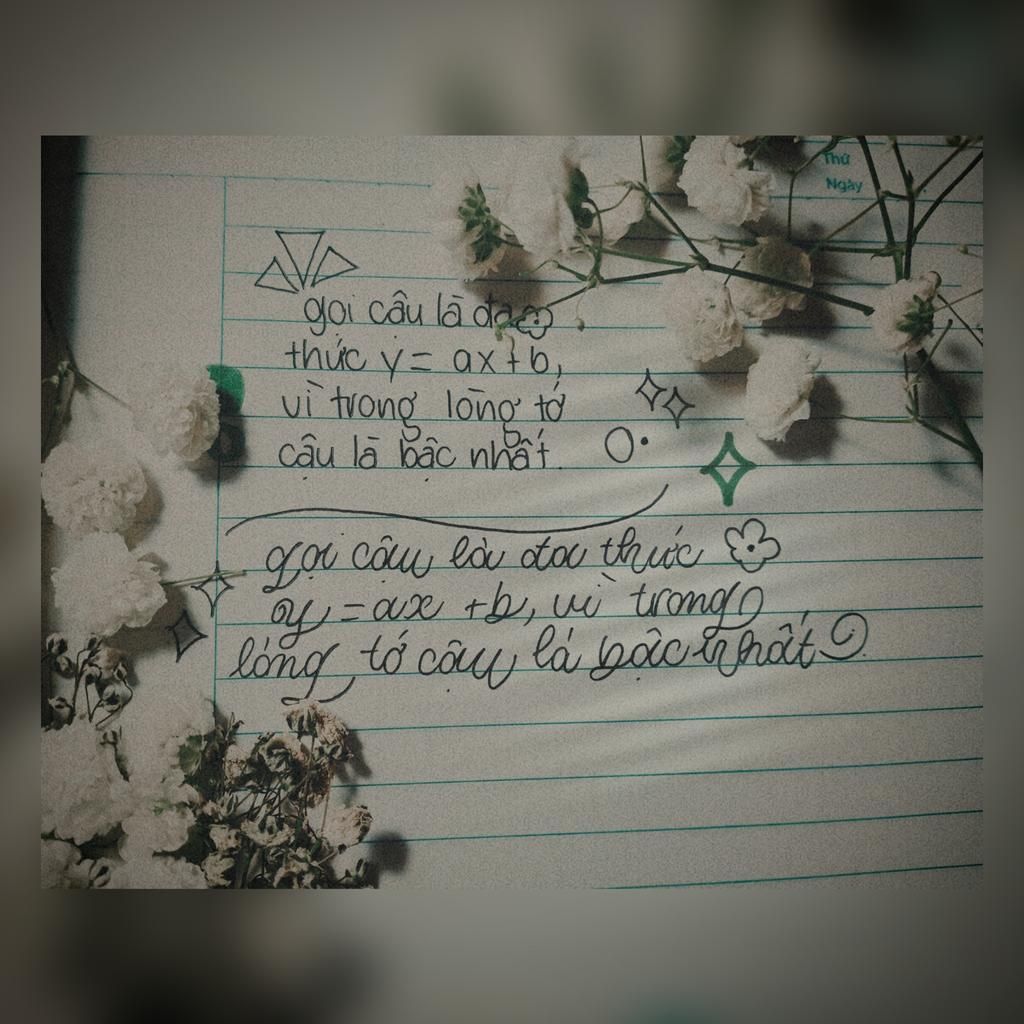 Thứ
Ngày
gọi cậu là đa
thức y = ax + b,
vì trong lòng tớ
cậu là bậc nhất.
gọi cậu là đa thức
y = ax + b, vì trong
lòng tớ cậu là bậc nhất